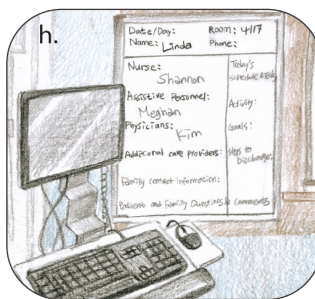 h.
Date/Day:
Room: 417
Name: Linda
Phone:
Nurse:
Shannon
Assistive Personnel:
Meghan
Physicians:
Kim
Additional care providers:
Family contact information:
Patient and Family Questions & comments
Today's
schedule &
Activity:
Goals:
Steps to
Discharge: